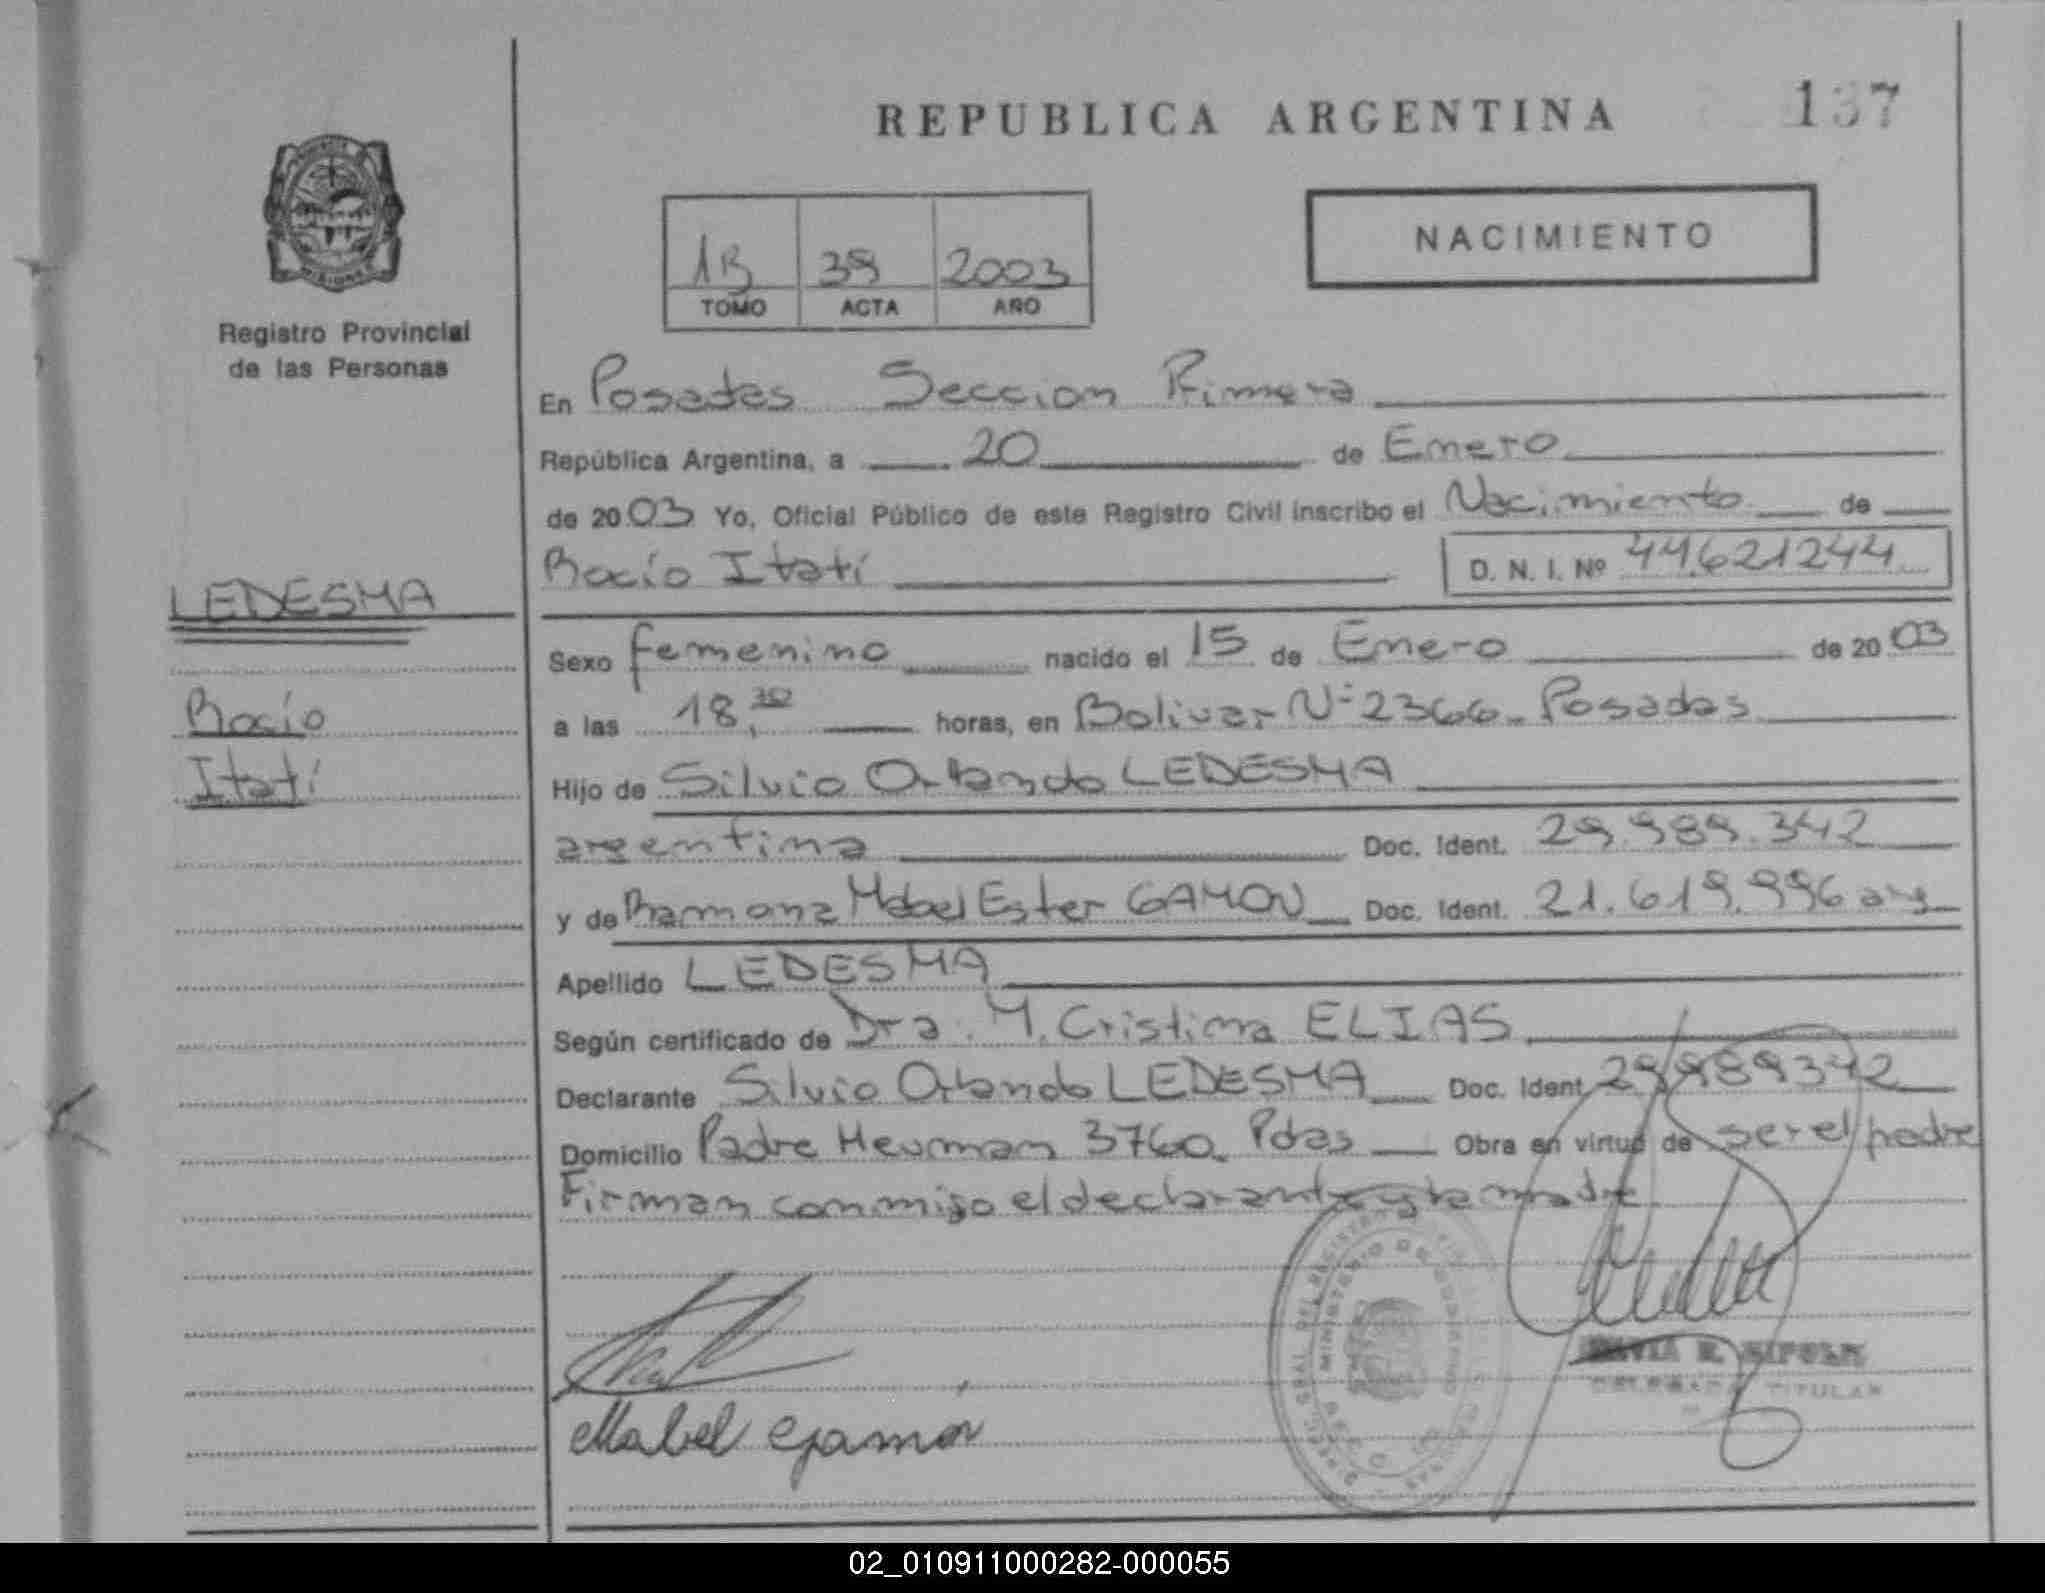 REPUBLICA ARGENTINA
137
MISIONES
Registro Provincial
de las Personas
1B 39 2003
TOMO ACTA AÑO
NACIMIENTO
En Posadas Seccion Primera
República Argentina, a 20 de Enero
de 2003 Yo, Oficial Público de este Registro Civil inscribo el Nacimiento de
Rocío Itatí D. N. I. Nº 44.621244
LEDESMA
Rocío
Itatí
Sexo femenino nacido el 15 de Enero de 2003
a las 18,30 horas, en Bolivar Nº 2366. Posadas
Hijo de Silvio Orlando LEDESMA
argentina Doc. Ident. 29.989.342
y de Ramona Mabel Ester GAMON Doc. Ident. 21.619.996 arg
Apellido LEDESMA
Según certificado de Dra. M. Cristina ELIAS
Declarante Silvio Orlando LEDESMA Doc. Ident 29989342
Domicilio Padre Heuman 3760. Pdas Obra en virtud de ser el padre
Firman conmigo el declarante y la madre
Mabel Gamon
DELEGADA TITULAR
02_010911000282-000055